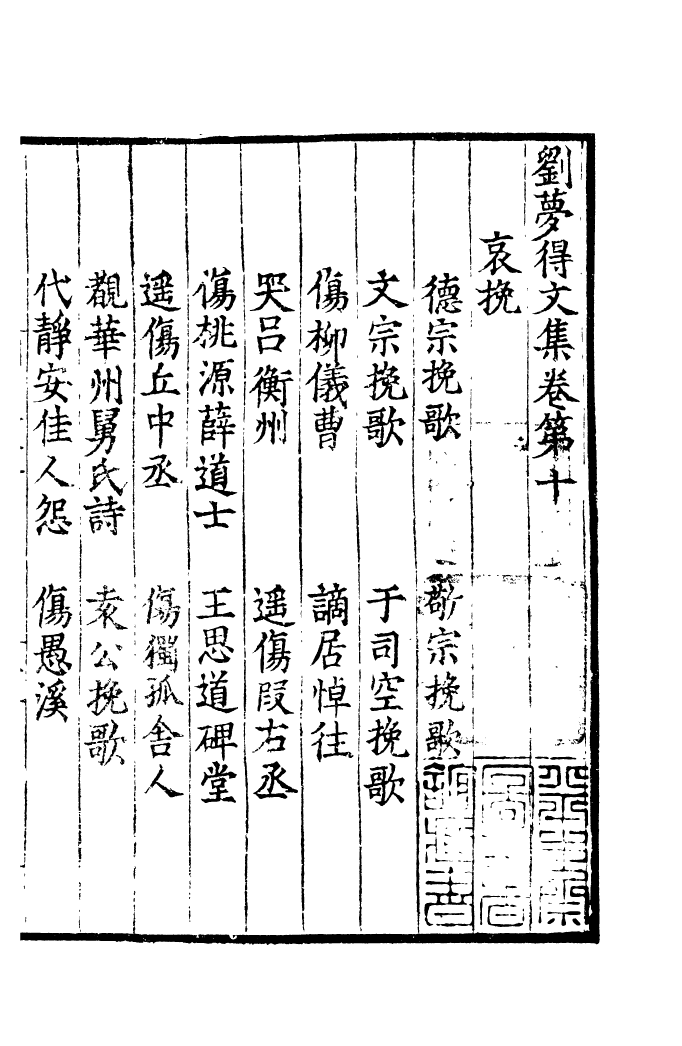 劉夢得文集卷第十
哀挽
德宗挽歌　敬宗挽歌
文宗挽歌　于司空挽歌
傷柳儀曹　謫居悼往
哭呂衡州　遥傷段右丞
傷桃源薛道士　王思道碑堂
遥傷丘中丞　傷獨孤舍人
觀華州舅氏詩　袁公挽歌
代靜安佳人怨　傷愚溪